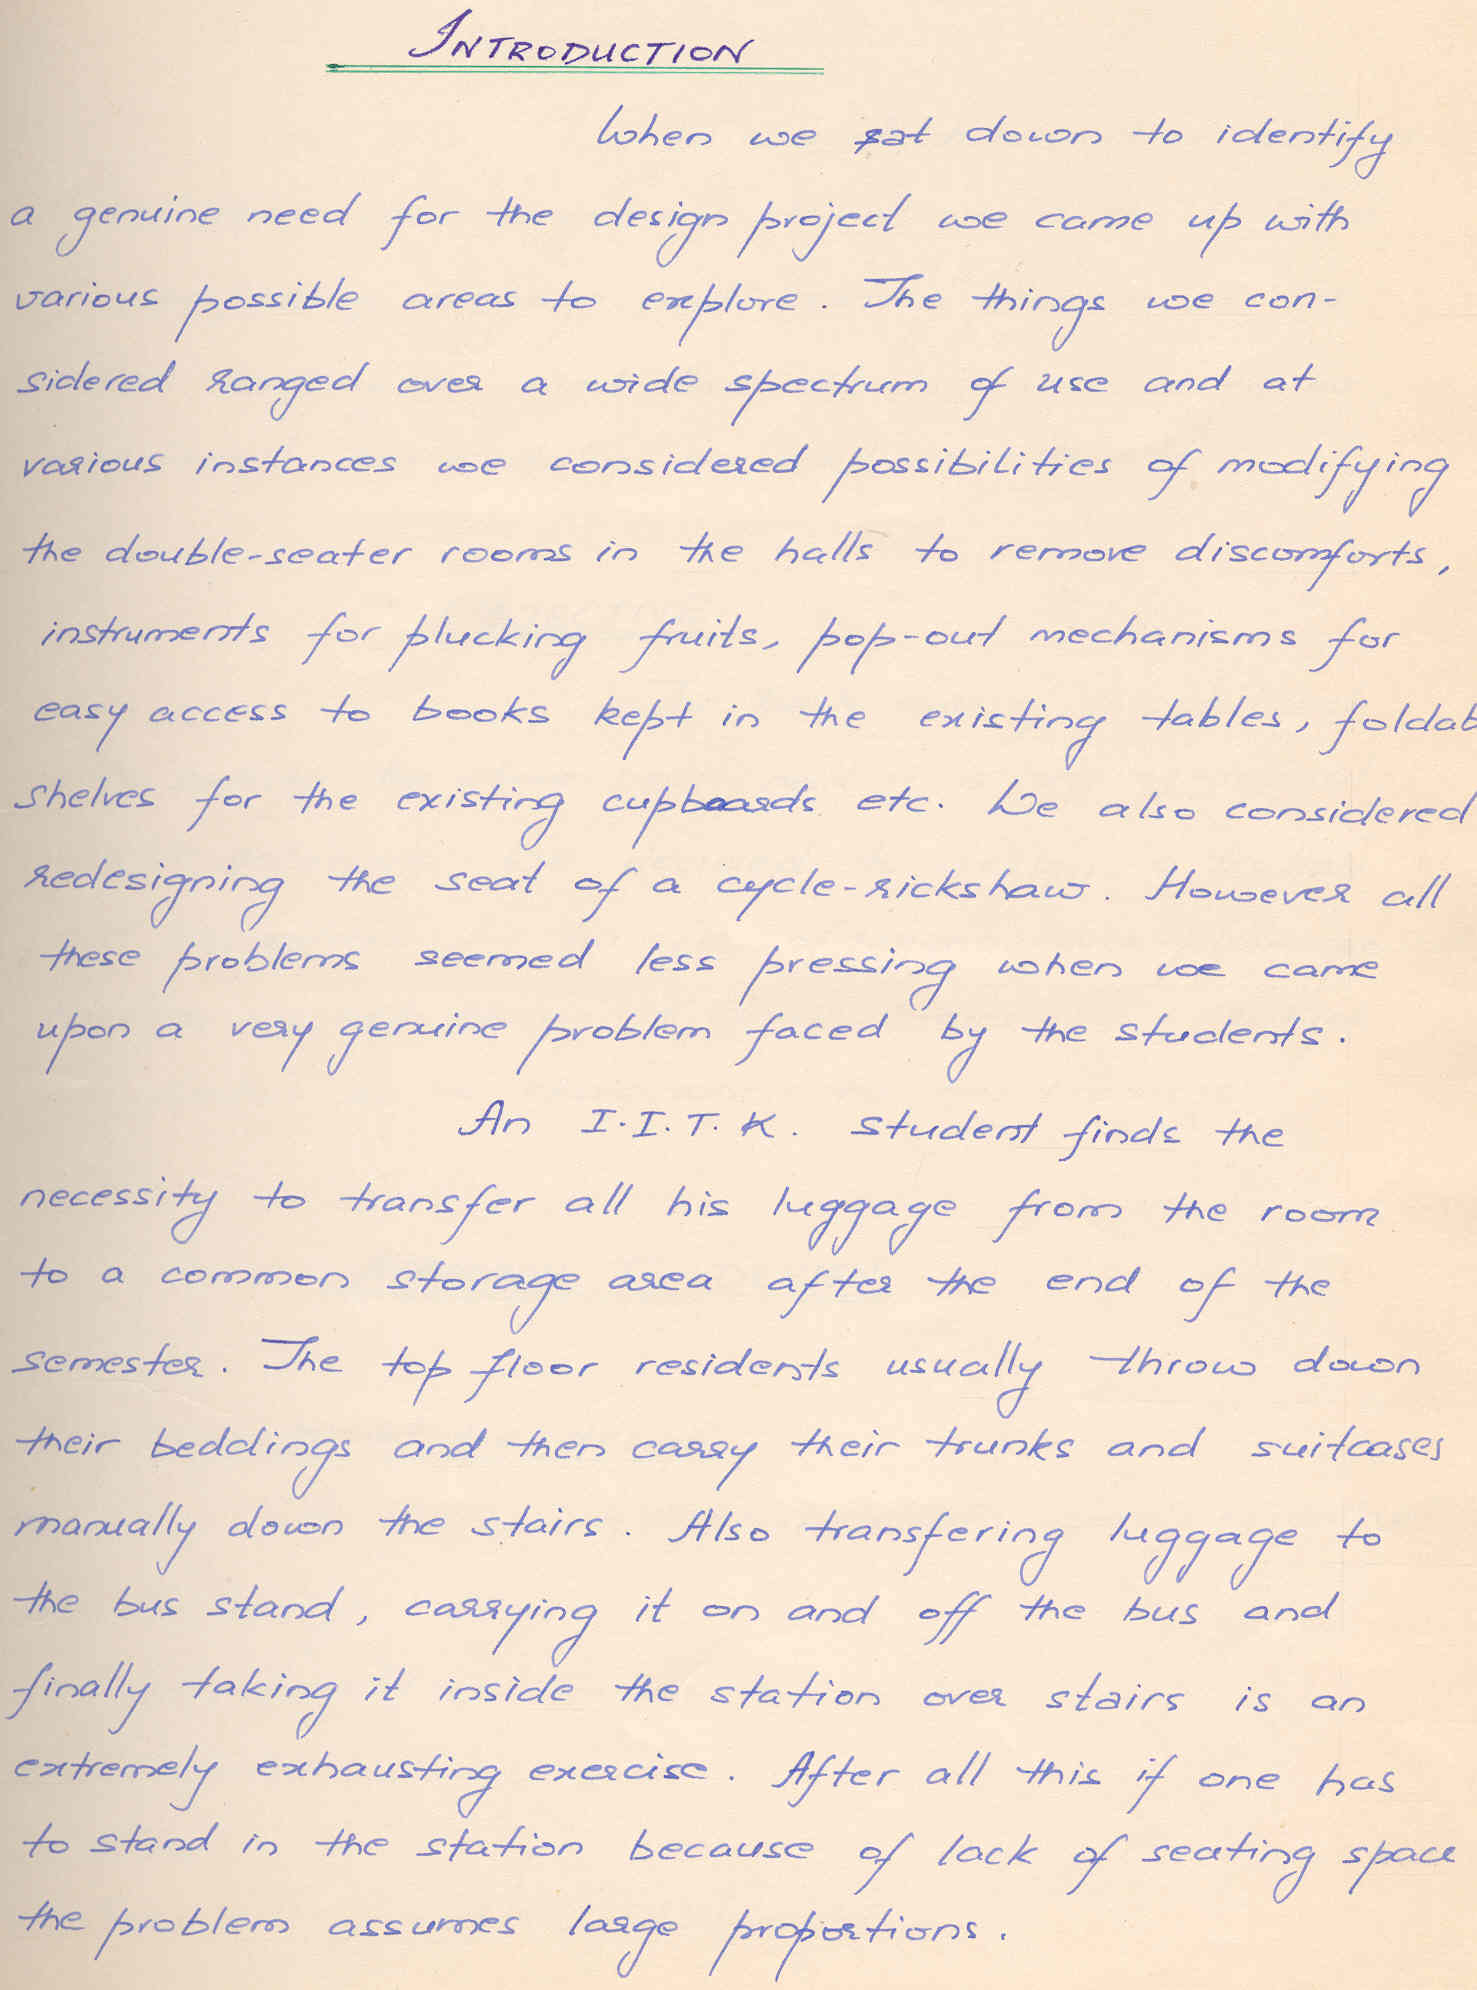 INTRODUCTION
When we sat down to identify
a genuine need for the design project we came up with
various possible areas to explore. The things we con-
sidered ranged over a wide spectrum of use and at
various instances we considered possibilities of modifying
the double-seater rooms in the halls to remove discomforts,
instruments for plucking fruits, pop-out mechanisms for
easy access to books kept in the existing tables, foldab
shelves for the existing cupboards etc. We also considered
redesigning the seat of a cycle-rickshaw. However all
these problems seemed less pressing when we came
upon a very genuine problem faced by the students.
An I.I.T.K. student finds the
necessity to transfer all his luggage from the room
to a common storage area after the end of the
semester. The top floor residents usually throw down
their beddings and then carry their trunks and suitcases
manually down the stairs. Also transfering luggage to
the bus stand, carrying it on and off the bus and
finally taking it inside the station over stairs is an
extremely exhausting exercise. After all this if one has
to stand in the station because of lack of seating space
the problem assumes large proportions.